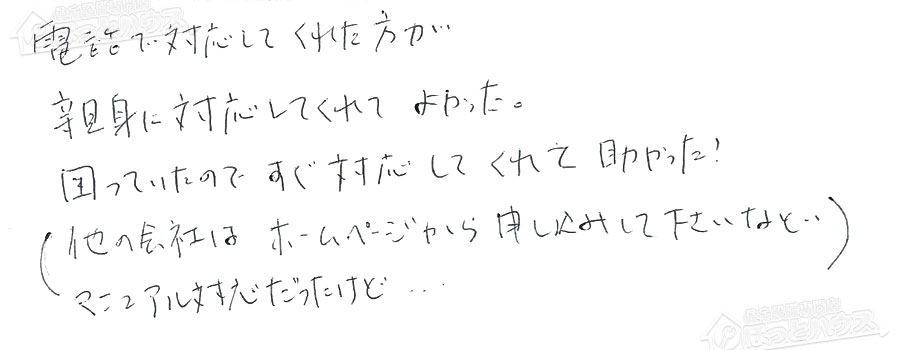 電話で対応してくれた方が
親身に対応してくれてよかった。
困っていたのですぐ対応してくれて助かった!
(他の会社はホームページから申し込みして下さいなど‥
マニュアル対応だったけど…)
住宅設備専門店
ほっとハウス